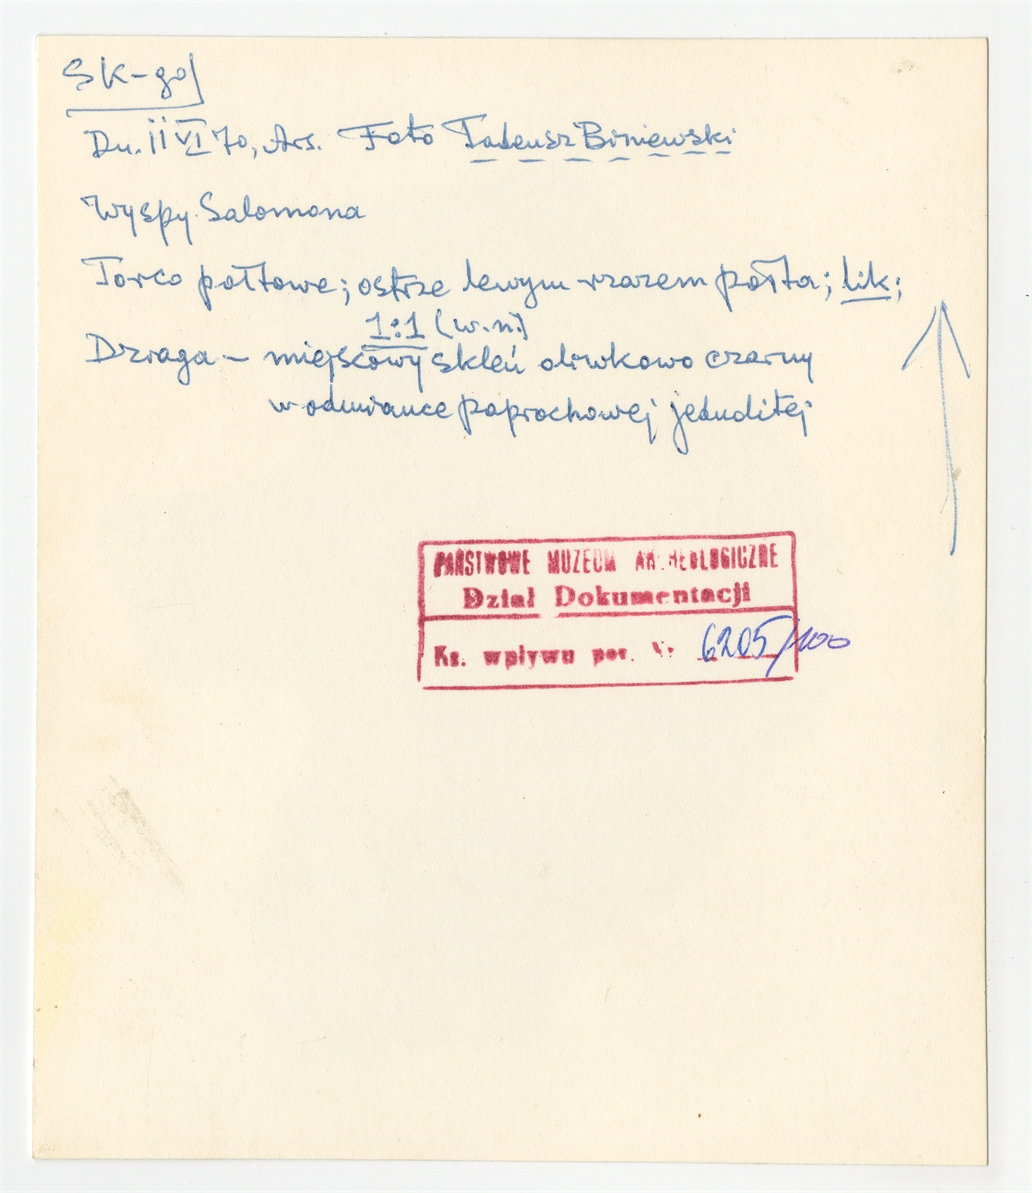 SK-go
Dn. 11 VI 70, Ars. Foto Tadeusz Biniewski
Wyspy Salomona
połtowe; ostrze lewym wrazem połta; lik;
1:1 (w.n.)
Dziaga – miejscowy skleń oliwkowo czarny
w odmiance paprochowej jednolitej
PAŃSTWOWE MUZEUM ARCHEOLOGICZNE
Dział Dokumentacji
Ks. wpływu poz. Nr 6205/100